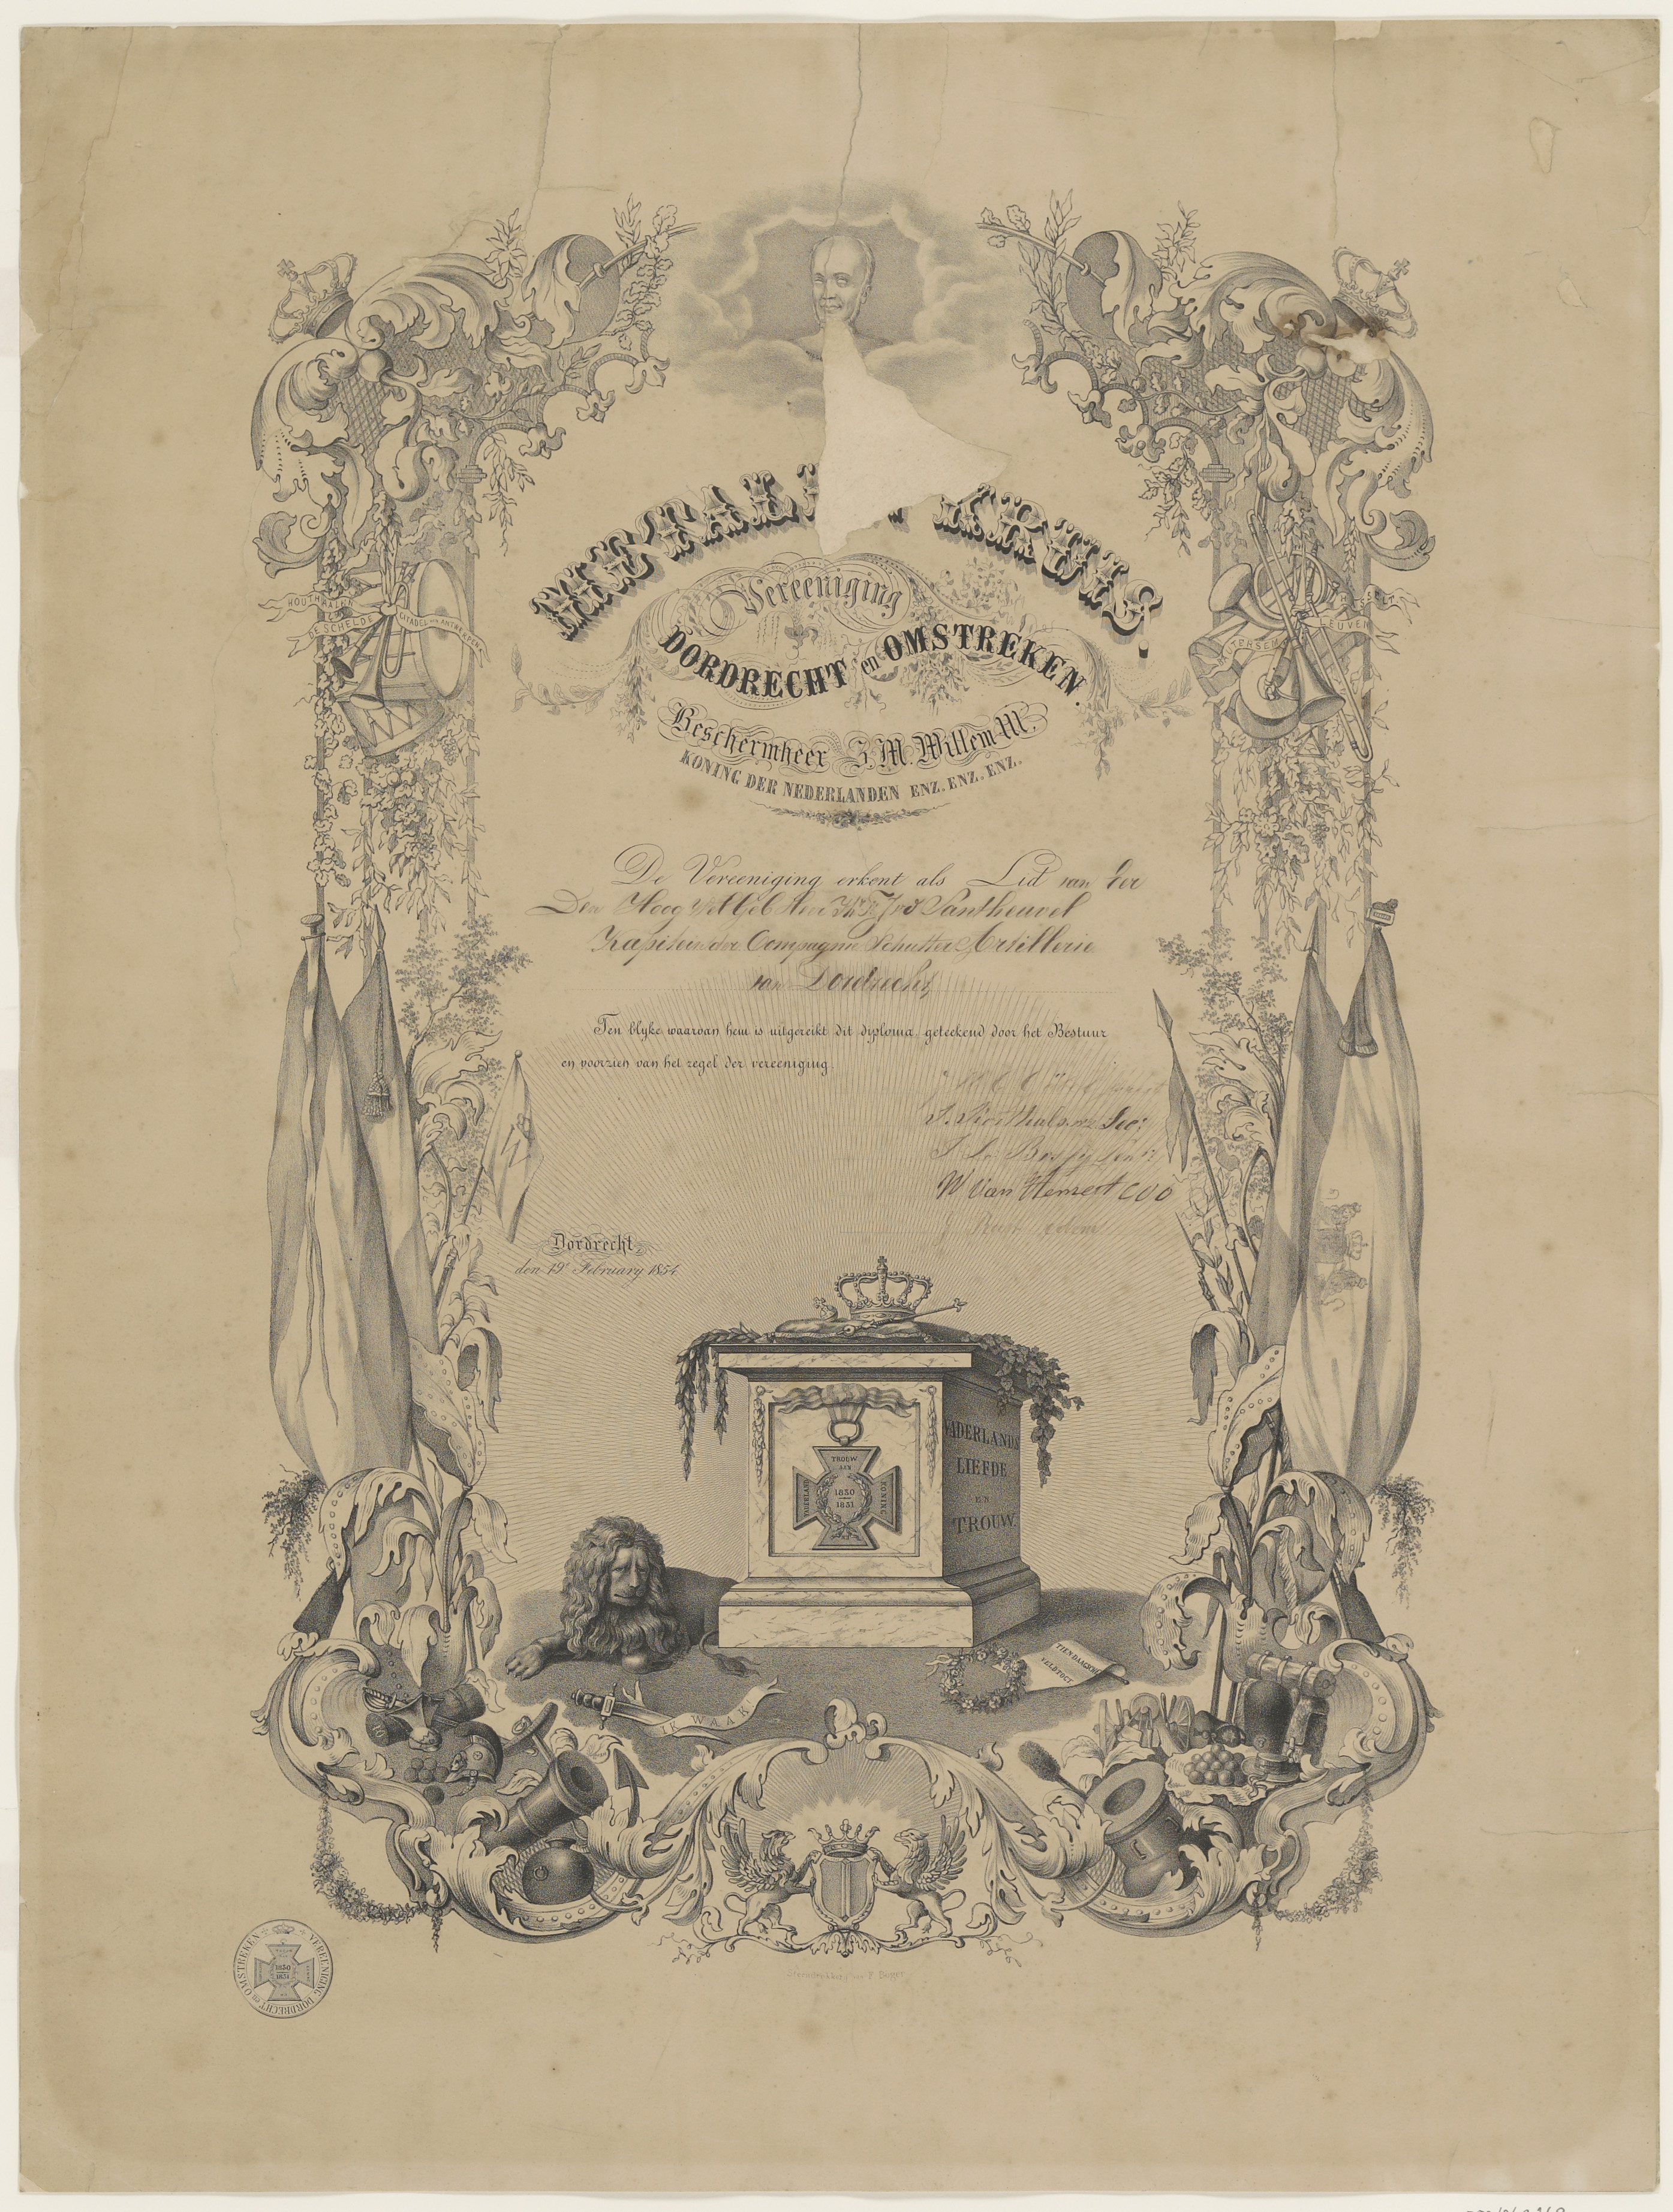 METALEN KRUIS,
Vereeniging
DORDRECHT en OMSTREKEN.
Beschermheer Z.M. Willem III.
KONING DER NEDERLANDEN ENZ. ENZ. ENZ.
HOUTHALEN
DE SCHELDE
CITADEL VAN ANTWERPEN
LEUVEN
De Vereeniging erkent als Lid van der
Den Hoog Wel Geb Heer Santheuvel
Kapitein der Compagnie Schutter Artillerie
van Dordrecht,
Ten blyke waarvan hem is uitgereikt dit diploma, geteekend door het Bestuur
en voorzien van het zegel der vereeniging.
Sec:
W van Hemert CCO
Dordrecht,
den 19e February 1854
W
TROUW
AAN
VADERLAND
KONING
1830
1831
VADERLANDS
LIEFDE
EN
TROUW.
TIENDAAGSCHE
VELDTOCT
IK WAAK
VEREENIGING DORDRECHT en OMSTREKEN
1830
1831